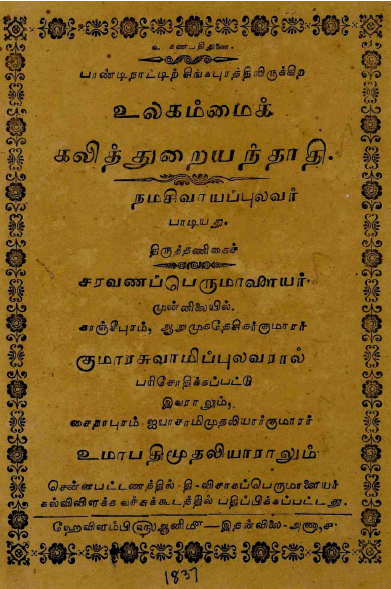 உ கணபதிதுணை.
பாண்டிநாட்டிற் சிங்கபுரத்திலிருக்கிற
உலகம்மைக்
கலித்துறையந்தாதி.
நமசிவாயப்புலவர்
பாடியது.
திருத்தணிகைச்
சரவணப்பெருமாளையர்
முன்னிலையில்.
காஞ்சீபுரம், ஆறுமுகதேசிகர்குமாரர்
குமாரசுவாமிப்புலவரால்
பரிசோதிக்கப்பட்டு
இவராலும்,
சைதாபுரம்
உமாபதிமுதலியாராலும்
சென்னபட்டணத்தில் தி-விசாகப்பெருமாளையர்
கல்விவிளக்க வச்சுக்கூடத்தில் பதிப்பிக்கப்பட்டது.
ஹேவிளம்பி ஆனி இதன்விலை-அணா,
1837